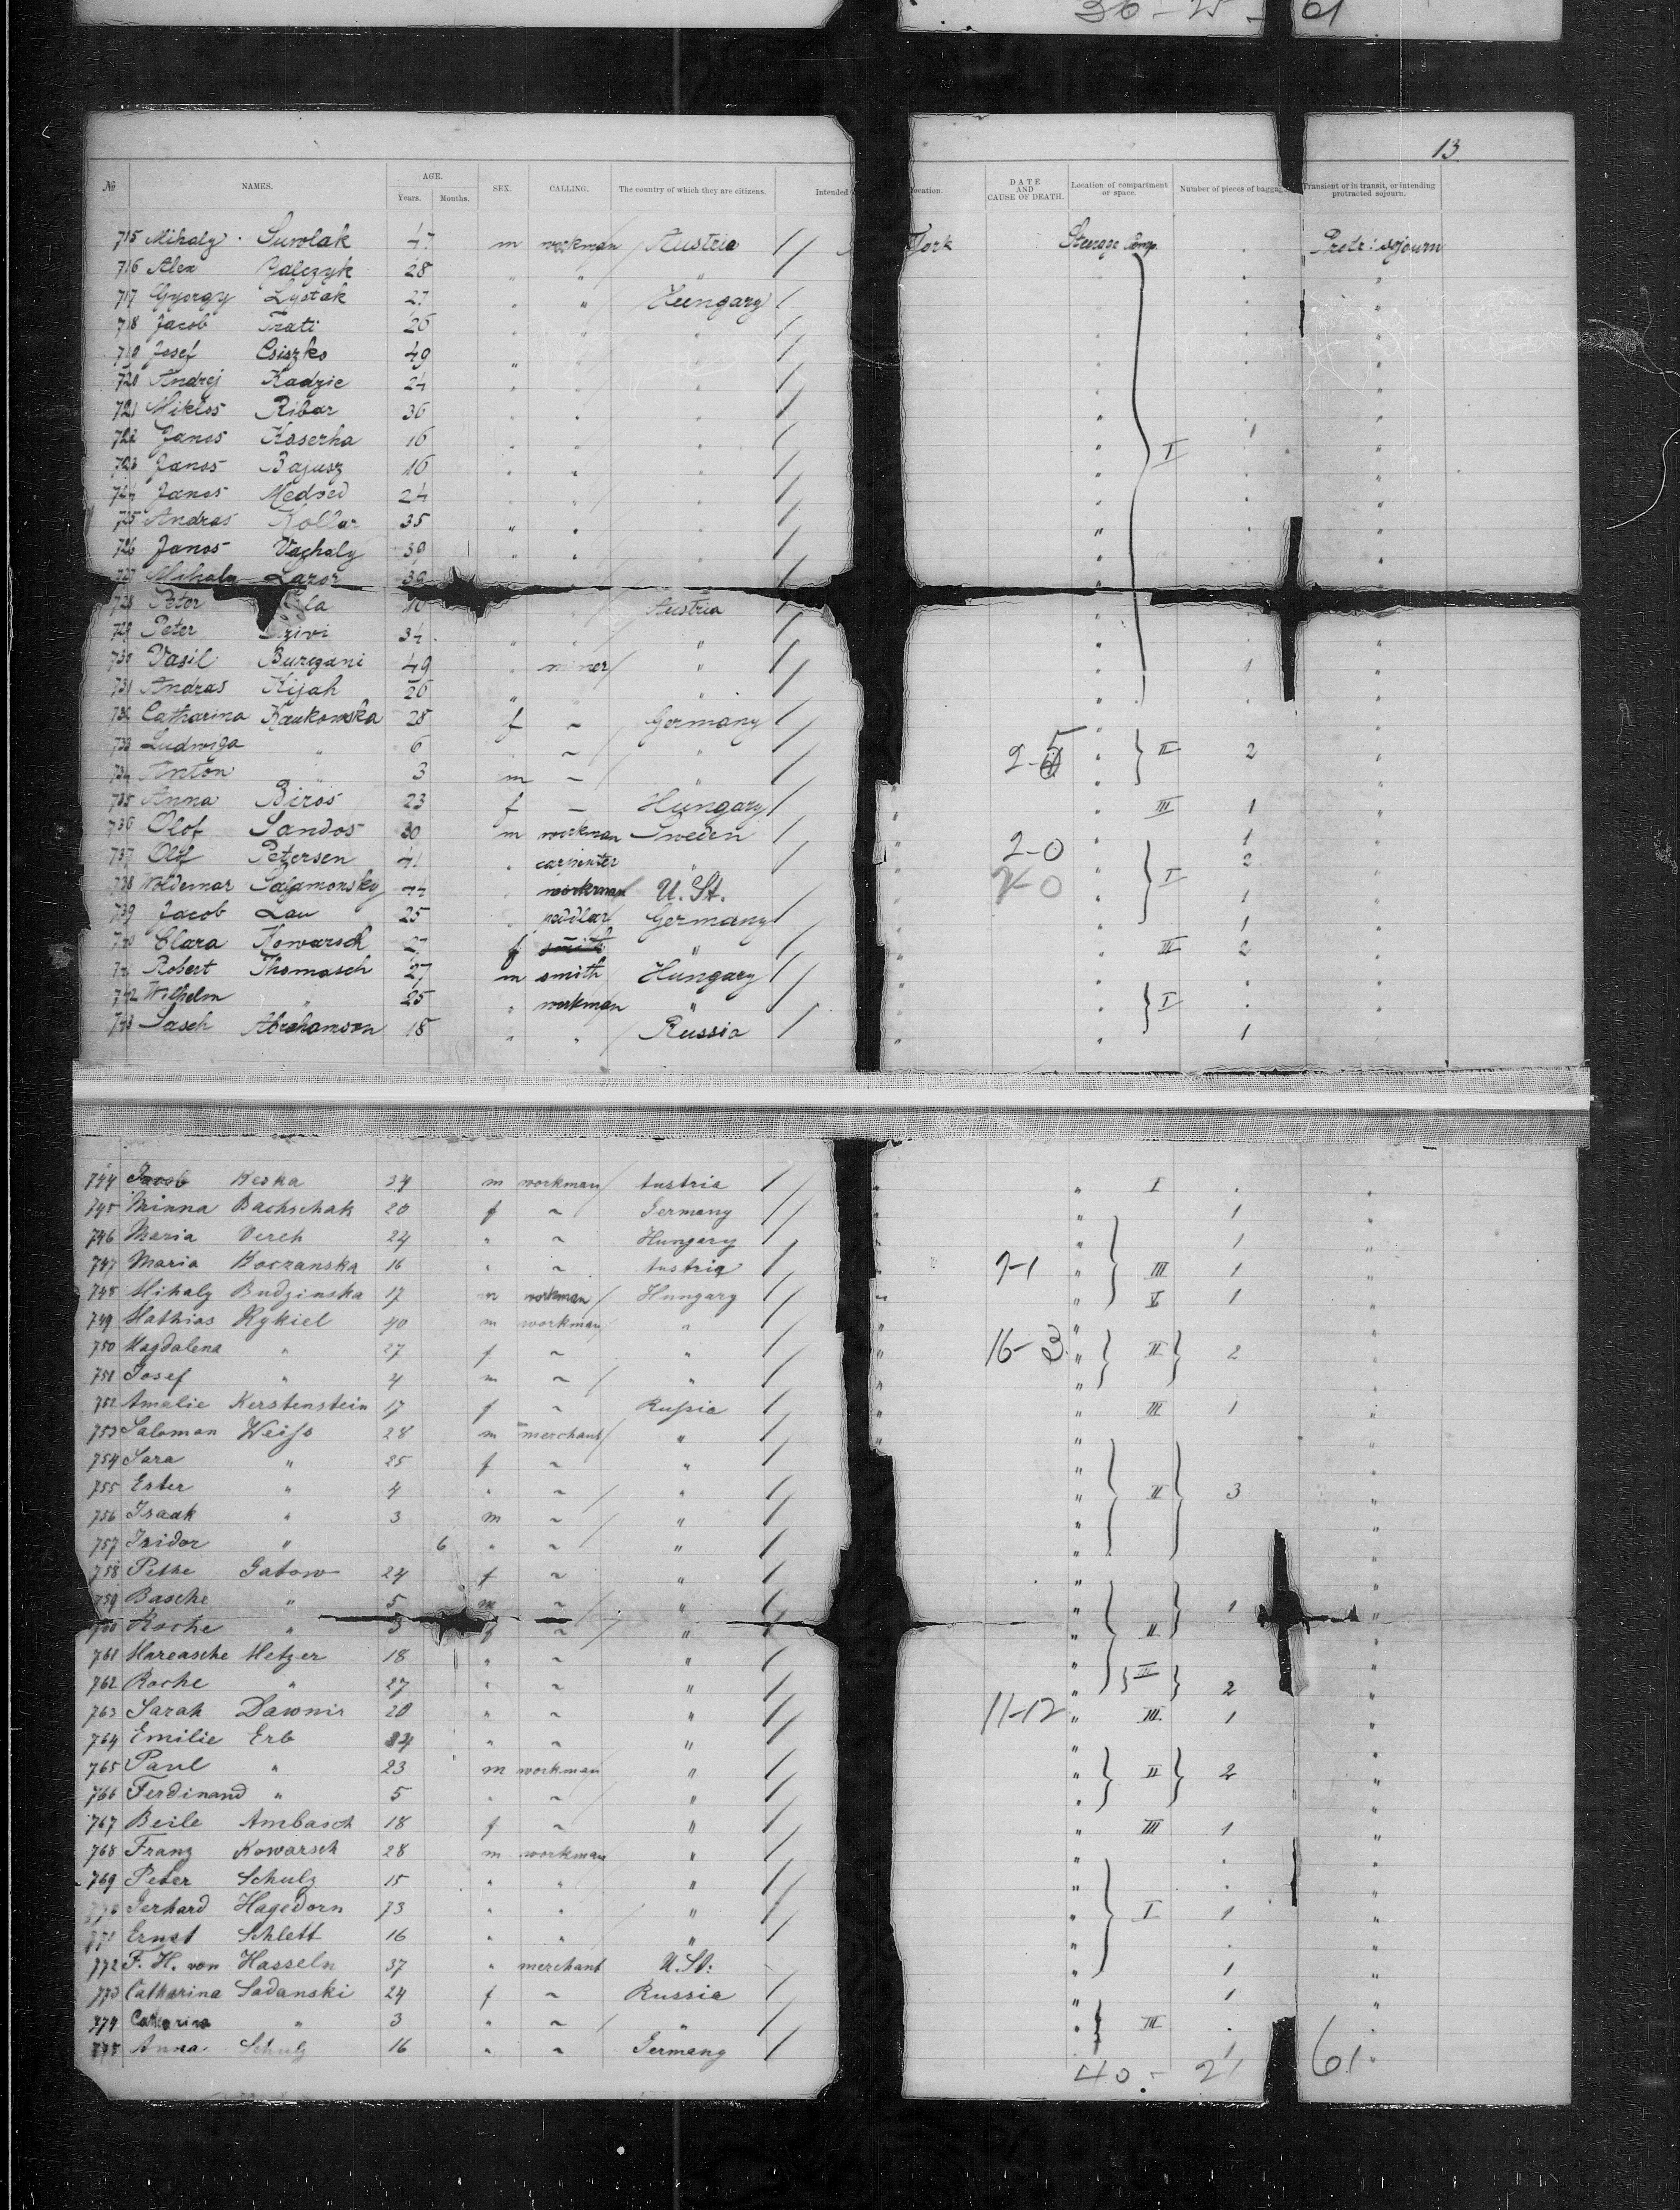 36 - 25 - 61
13
№ NAMES. AGE. Years. Months. SEX. CALLING. The country of which they are citizens. Intended location. DATE AND CAUSE OF DEATH. Location of compartment or space. Number of pieces of baggage Transient or in transit, or intending protracted sojourn.
715 Mihaly Suwlak 47 m workman Austria York Steerage Comp. Protr: sojourn
716 Alex 28 " " "
717 György Lystak 27 " " Hungary
718 Jacob Trati 26
719 Josef Csiszko 49
720 Andrej Kadzie 24
721 Miklos Ribar 36
722 Janos Kaserha 16 I 1
723 Janos Bajusz 16
724 Janos Medved 24
725 Andras Kollar 35
726 Janos Vachaly 39
727 Mihaly Lazor 39
728 Peter Austria
729 Peter 34 "
730 Vasil Burczani 49 miner " 1
731 Andras Kijah 26 " "
732 Catharina Kaukowska 28 f ~ Germany
733 Ludwiga " 6 ~ " 2-5 II 2
734 Anton " 3 m ~ "
735 Anna Biros 23 f — Hungary III 1
736 Olof Sandos 30 m workman Sweden 1
737 Olof Petersen 41 carpenter " 2-0 2
738 Woldemar Salamonsky 44 workman U. St. 2-0 I 1
739 Jacob Lau 25 pedlar Germany 1
740 Clara Kowarsch 27 f smith " III 2
741 Robert Thomasch 27 m smith Hungary
742 Wilhelm " 25 " workman " I
743 Sasch Abrahamson 18 " " Russia 1
744 Jacob Keska 34 m workman Austria " I
745 Minna Bachschak 20 f ~ Germany " 1
746 Maria Verch 24 " ~ Hungary " 1
747 Maria Koczanska 16 " ~ Austria 2-1 " III 1
748 Mihaly Budzinska 17 m workman Hungary " V 1
749 Mathias Rykiel 40 m workman " "
750 Magdalena " 27 f ~ " 16-3 " II 2
751 Josef " 4 m ~ " "
752 Amalie Kerstenstein 17 f ~ Russia " III 1
753 Salomon Weiss 28 m merchant " "
754 Sara " 25 f ~ " "
755 Ester " 4 " ~ " " II 3
756 Isaak " 3 m ~ " "
757 Isidor " 6 " ~ " "
758 Peshe Gatow 24 f ~ " "
759 Basche " 5 m ~ " " 1
760 Roche " 3 f ~ " " II
761 Mareasche Metzer 18 " ~ " "
762 Roche " 27 " ~ " " II 2
763 Sarah Dawnis 20 " ~ " 11-12 " III 1
764 Emilie Erb 24 " ~ " "
765 Paul " 23 m workman " " II 2
766 Ferdinand " 5 " ~ " "
767 Beile Ambasch 18 f ~ " " III 1
768 Franz Kowarsch 28 m workman " "
769 Peter Schulz 15 " " " "
770 Gerhard Hagedorn 73 " " " " I 1
771 Ernst Schlett 16 " " " "
772 F. H. von Hasseln 37 " merchant U. St: " 1
773 Catharina Sadanski 24 f ~ Russia " 1
774 Catharina " 3 " ~ " " III
775 Anna Schulz 16 " ~ Germany 1
40 - 21 61